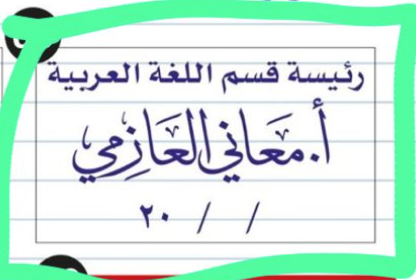 رئيسة قسم اللغة العربية
أ. مَعَاني العَازِمي
/ / ٢٠